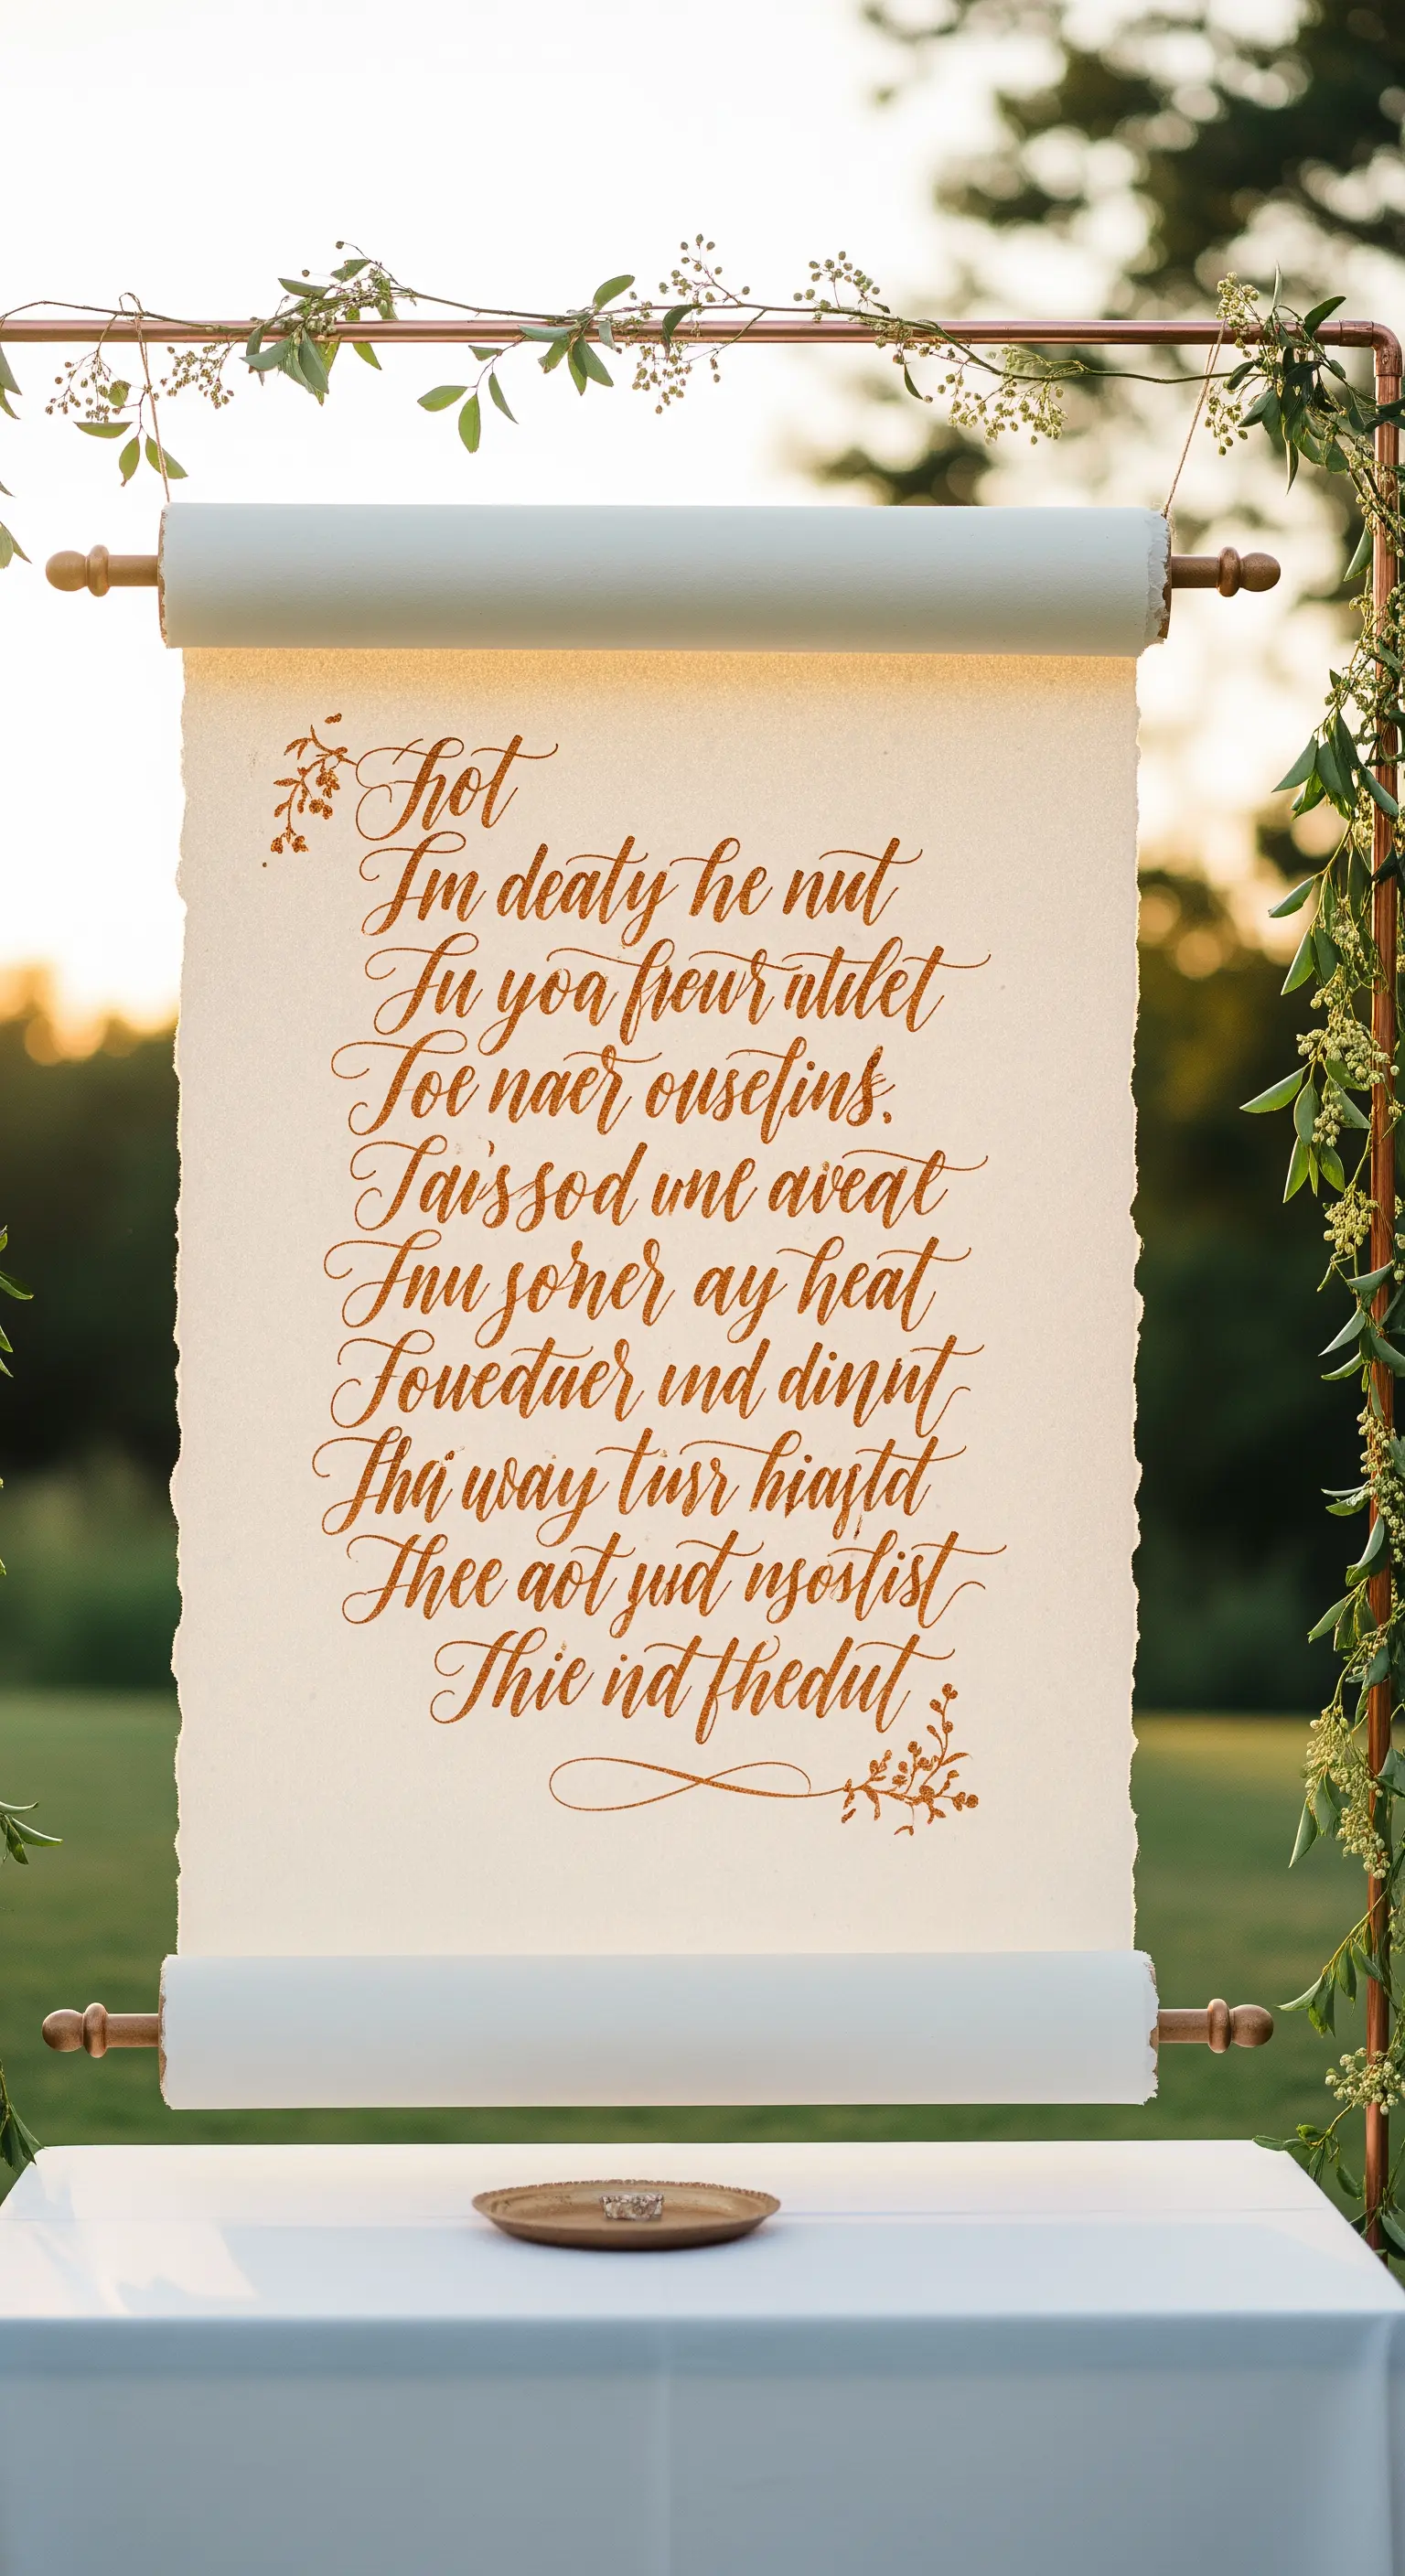 Thot
Im deaty he nut
Tu yoa frewr ntilet
Toe naer ouselins.
Taissod une aveat
Tnu soner ay heat
Toueduer und dinnt
Tha way tusr hiastd
Thee aot jud nsostist
Thie ind fhedut